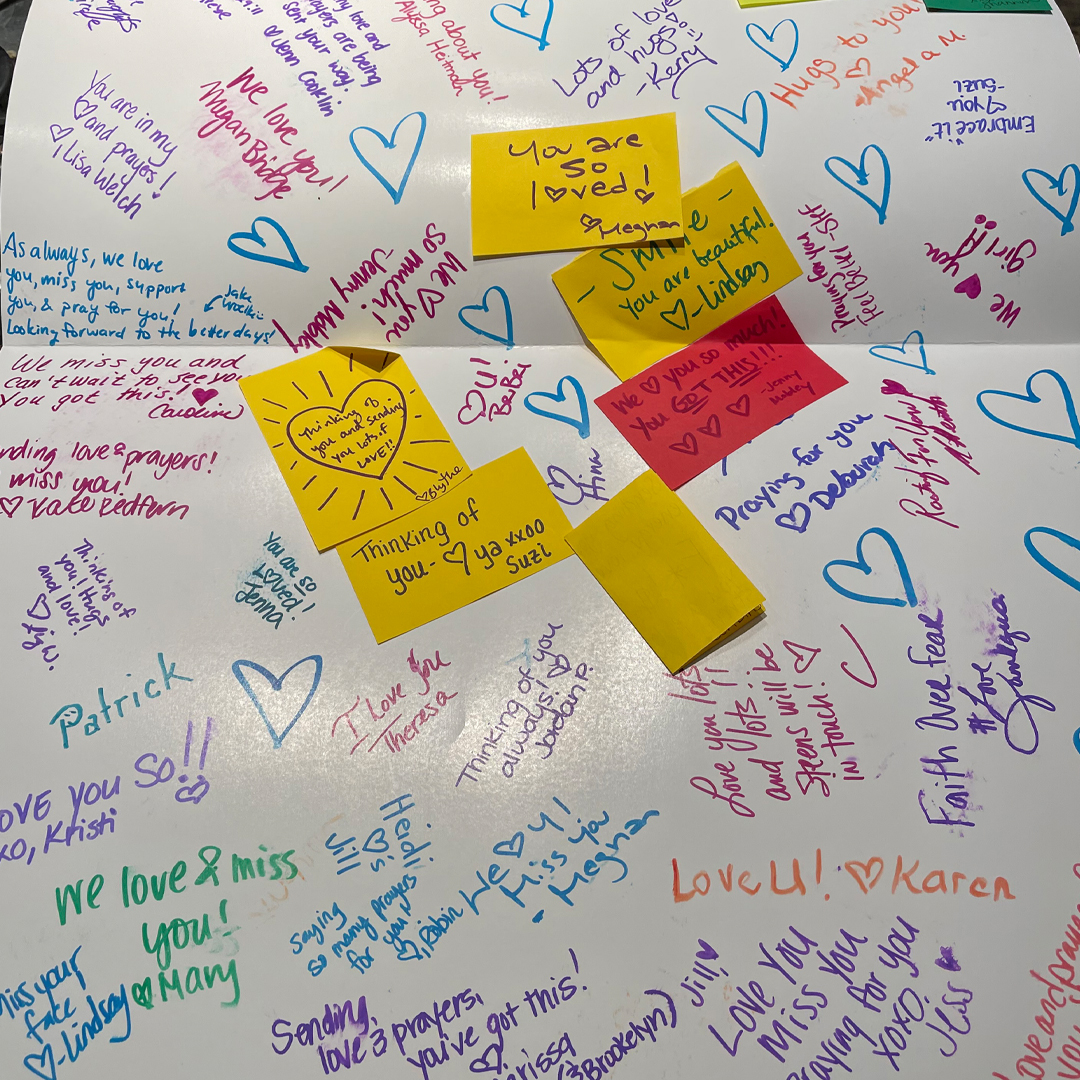 my love and
prayers are being
sent your way.
Jenn Conklin
about you!
Alyssa Heitman
Lots of love
and hugs!
-Kerry
Hugs to you!
-Angela M.
"Embrace it"
♡ you
-Suzi
You are in my
♡ and prayers!
♡ Lisa Welch
We love you!
Megan Bridge
You are
so
loved!
♡ Meghan
- Smile -
You are beautiful.
♡-Lindsay
Praying for you
We ♥ you
Girl!!
As always, we love
you, miss you, support
you, & pray for you!
Looking forward to the better days
Jake
We ♡ you
so much!
-Jenny
We miss you and
can't wait to see you
You got this! ♥
Caroline
♡ U!
BeiBei
Thinking of
you and sending
you lots of
LOVE!!
♡Blythe
We ♡ you so much!
You GOT THIS!!!
♡ ♡ ♡
-Jenny
Thinking of
you- ♡ ya xxoo
Suzi
♡ Anna
Praying for you
♡ Deborah
Rooting for you! ♥
love & prayers!
miss you!
♡ Kate Redfern
Thinking of
you! Hugs
and love!
You are so
loved!
Jenna
Patrick
I Love You
Theresa
Thinking of you
always! ♡
Jordan P.
Love you lots
and lots!
Skeens will be
in touch! ♡
Faith Over Fear
# Love
LOVE you SO!!
xo, Kristi
We love & miss
you!
♡ Mary
Heidi
♡'s
Jill
Saying
so many prayers
for you!
♡, Robin
We ♡ U!
Miss you
- Meghan
Love U! ♡ Karen
miss your
face
♡-Lindsay
Sending
love & prayers,
you've got this!
♡
(Brookelyn)
Jill ♥
Love You
Miss You
Praying for you
xoxo
Jess ♥
Love and prayers